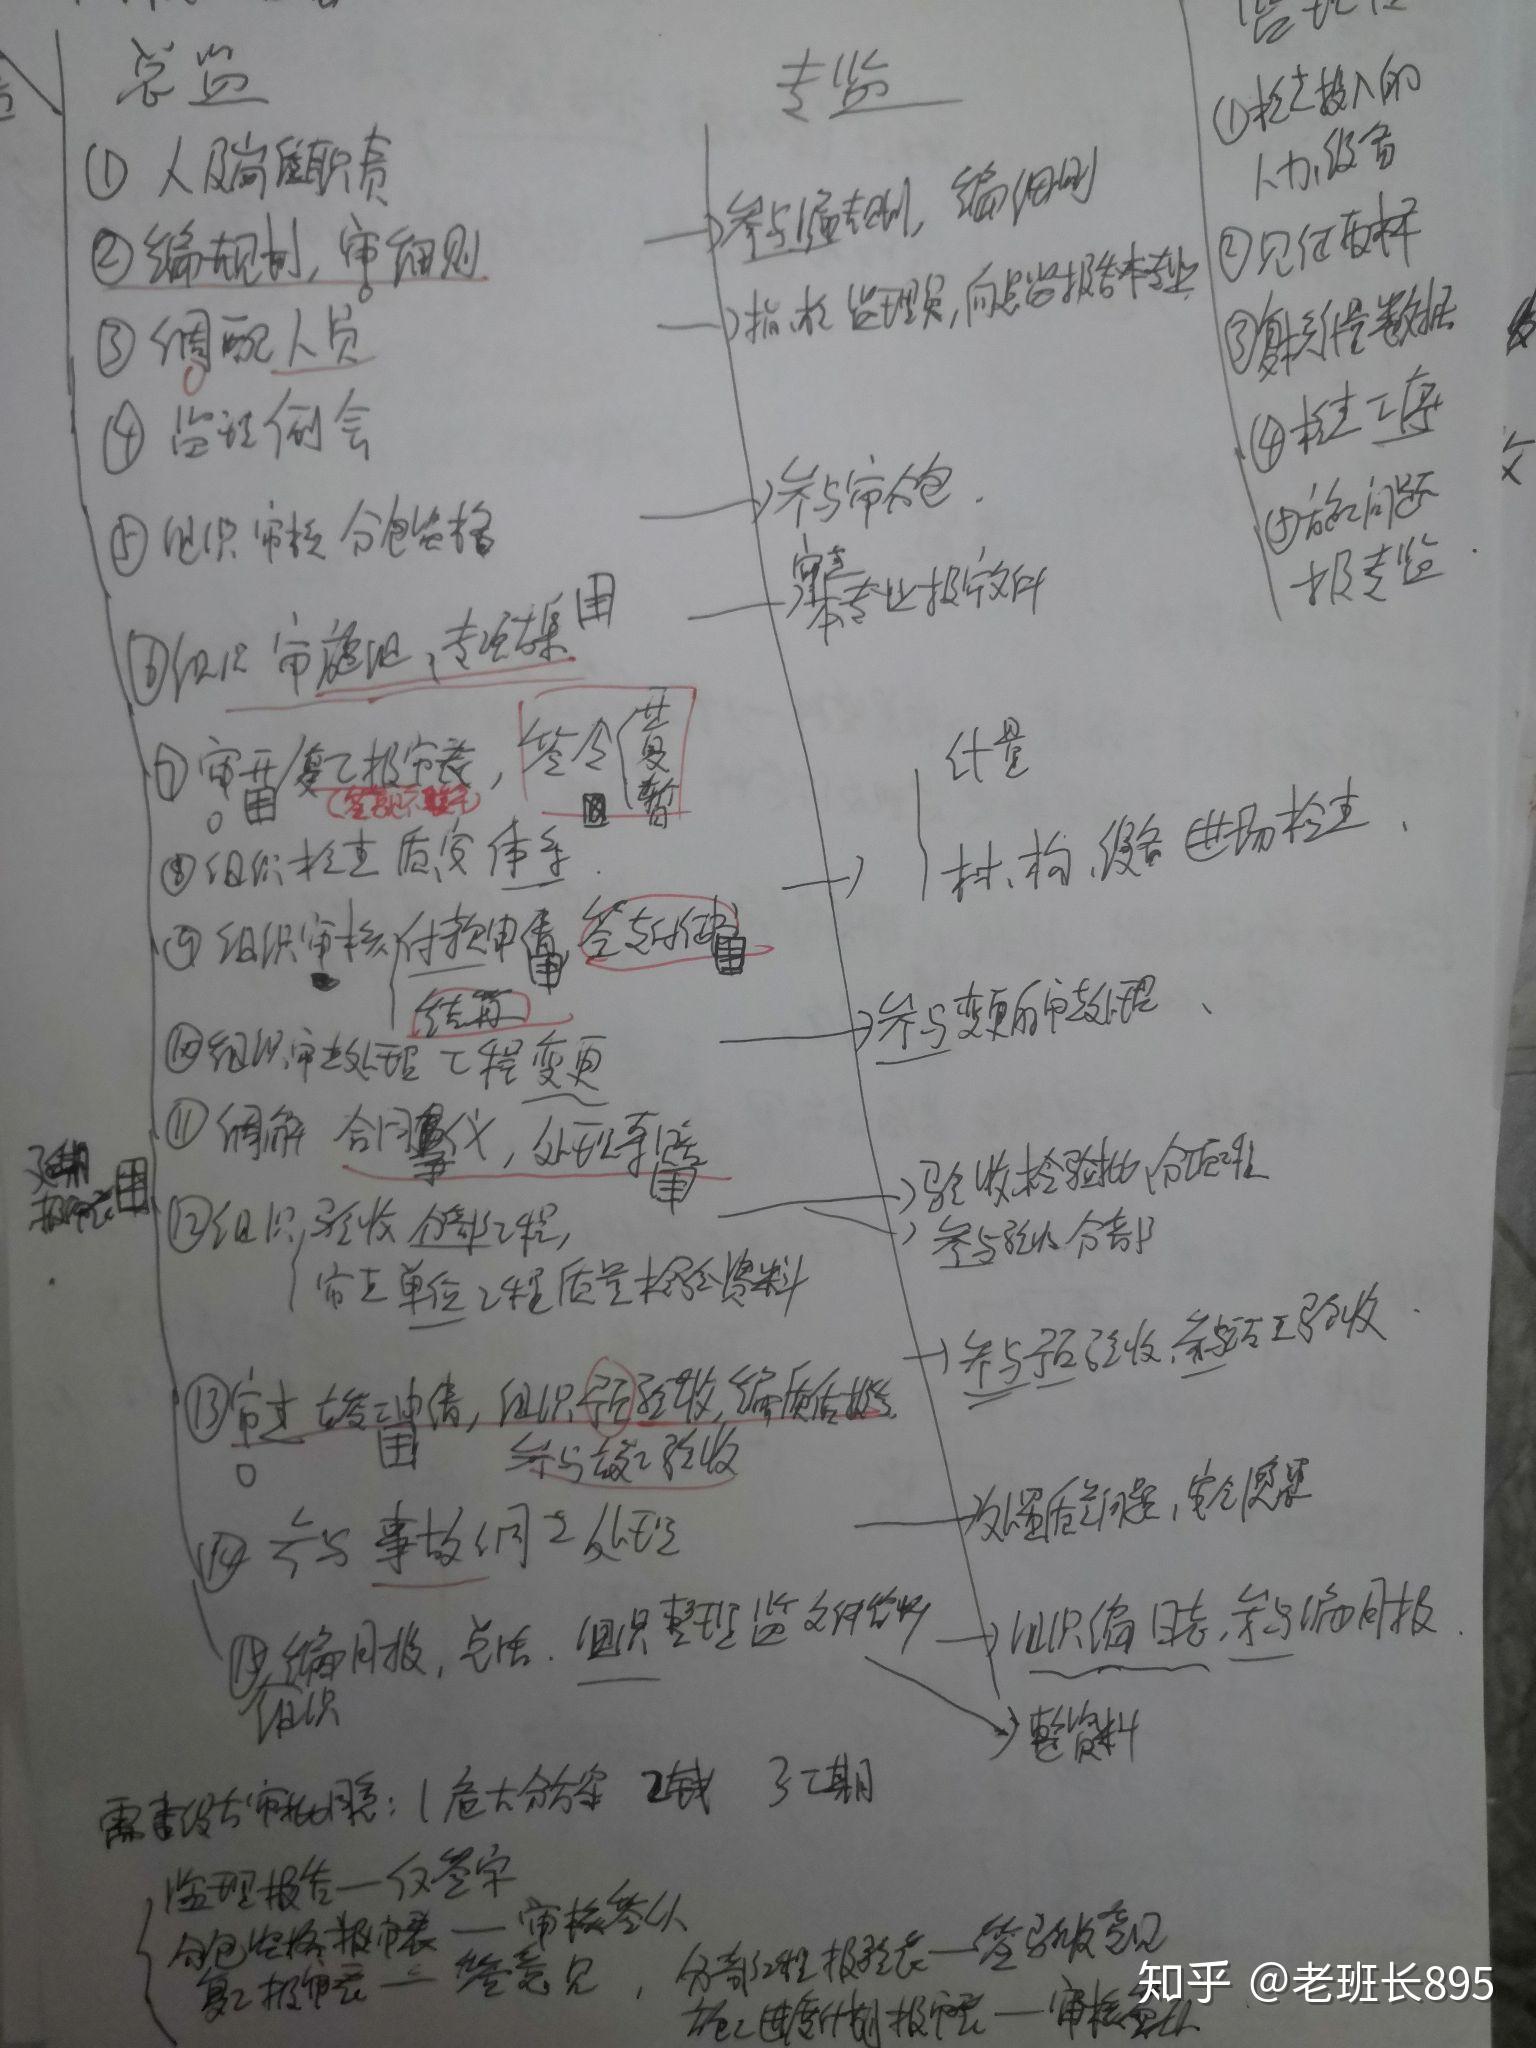 总监
①人及岗位职责
②编规划,审细则
③调配人员
④监理例会
⑤组织审核分包资格
⑥组织审施组、专项方案
⑦审开/复工报审表,签令
开
复
暂
⑧组织检查质安体系
⑨组织审核付款申请,签支付证书
结算
⑩组织审查处理工程变更
⑪调解合同争议,处理索赔
延期
报审表
⑫组织验收分部工程,
审查单位工程质量检验资料
⑬审查竣工申请,组织预验收,编质估报告
参与竣工验收
⑭参与事故调查处理
⑮编月报,总结.组织整理监文件资料
组织
专监
参与编规划,编细则
指、检监理员,向总监报告本专业
参与审分包.
审查
本专业报审文件
计量
材、构、设备进场检查.
参与变更的审查处理、
验收检验批、分项工程
参与验收分部
参与预验收,参与竣工验收.
处置质量问题,安全隐患
组织编日志,参与编月报.
整资料
①检查投入的
人力、设备
②见证取样
③复核计量数据
④检查工序
⑤施工问题
报专监.
需建设方审批同意:1危大分方案 2钱 3工期
监理报告—仅签字
分包资格报审表—审核签认
复工报审表—签意见,
分部工程报验表—签验收意见
施工进度计划报审表—审核签认
知乎 @老班长895